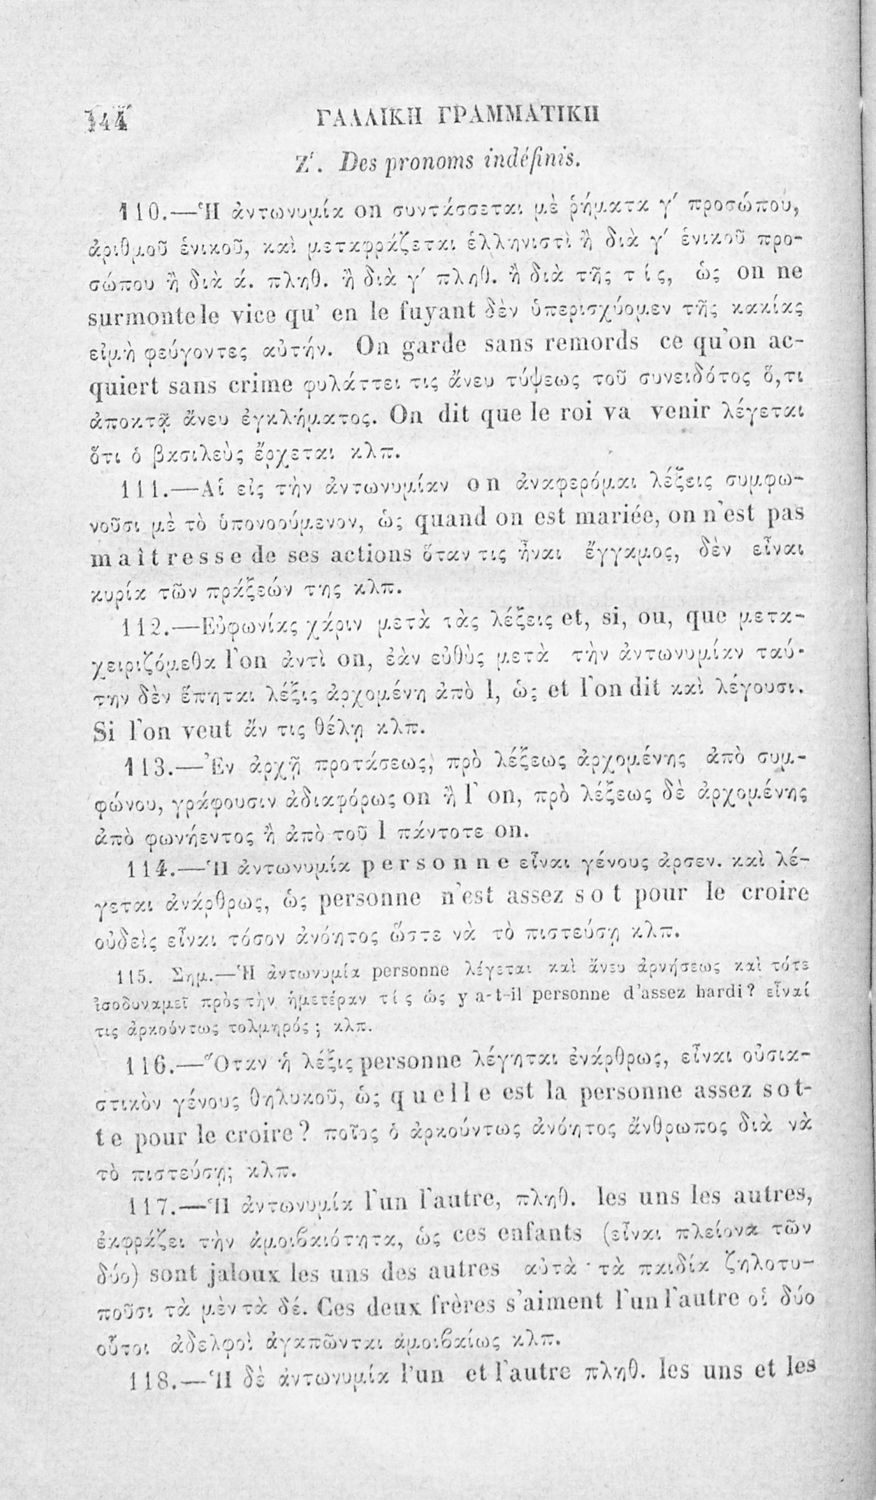 144 ΓΑΛΛΙΚΗ ΓΡΑΜΜΑΤΙΚΗ
Ζ′. Des pronoms indéfinis.
110.—Ἡ ἀντωνυμία on συντάσσεται μὲ ῥήματα γ′ προσώπου,
ἀριθμοῦ ἑνικοῦ, καὶ μεταφράζεται ἑλληνιστὶ ἢ διὰ γ′ ἑνικοῦ προ-
σώπου ἢ διὰ ά. πληθ. ἢ διὰ γ′ πληθ. ἢ διὰ τῆς τίς, ὡς on ne
surmonte le vice qu' en le fuyant δὲν ὑπερισχύομεν τῆς κακίας
εἰμὴ φεύγοντες αὐτήν. On garde sans remords ce qu'on ac-
quiert sans crime φυλάττει τις ἄνευ τύψεως τοῦ συνειδότος ὅ,τι
ἀποκτᾷ ἄνευ ἐγκλήματος. On dit que le roi va venir λέγεται
ὅτι ὁ βασιλεὺς ἔρχεται κλπ.
111.—Αἱ εἰς τὴν ἀντωνυμίαν on ἀναφερόμαι λέξεις συμφω-
νοῦσι μὲ τὸ ὑπονοούμενον, ὡς quand on est mariée, on n'est pas
maîtresse de ses actions ὅταν τις ἦναι ἔγγαμος, δὲν εἶναι
κυρία τῶν πράξεών της κλπ.
112.—Εὐφωνίας χάριν μετὰ τὰς λέξεις et, si, ou, que μετα-
χειριζόμεθα l'on ἀντὶ on, ἐὰν εὐθὺς μετὰ τὴν ἀντωνυμίαν ταύ-
την δὲν ἕπηται λέξις ἀρχομένη ἀπὸ l, ὡς et l'on dit καὶ λέγουσι.
Si l'on veut ἄν τις θέλῃ κλπ.
113.—Ἐν ἀρχῇ προτάσεως, πρὸ λέξεως ἀρχομένης ἀπὸ συμ-
φώνου, γράφουσιν ἀδιαφόρως on ἢ l' on, πρὸ λέξεως δὲ ἀρχομένης
ἀπὸ φωνήεντος ἢ ἀπὸ τοῦ l πάντοτε on.
114.—Ἡ ἀντωνυμία personne εἶναι γένους ἀρσεν. καὶ λέ-
γεται ἀνάρθρως, ὡς personne n'est assez sot pour le croire
οὐδεὶς εἶναι τόσον ἀνόητος ὥστε νὰ τὸ πιστεύσῃ κλπ.
115. Σημ.—Ἡ ἀντωνυμία personne λέγεται καὶ ἄνευ ἀρνήσεως καὶ τότε
ἰσοδυναμεῖ πρὸς τὴν ἡμετέραν τίς ὡς y a-t-il personne d'assez hardi? εἶναί
τις ἀρκούντως τολμηρός; κλπ.
116.—Ὅταν ἡ λέξις personne λέγηται ἐνάρθρως, εἶναι οὐσια-
στικὸν γένους θηλυκοῦ, ὡς quelle est la personne assez sot-
te pour le croire? ποῖος ὁ ἀρκούντως ἀνόητος ἄνθρωπος διὰ νὰ
τὸ πιστεύσῃ; κλπ.
117.—Ἡ ἀντωνυμία l'un l'autre, πληθ. les uns les autres,
ἐκφράζει τὴν ἀμοιβαιότητα, ὡς ces enfants (εἶναι πλείονα τῶν
δύο) sont jaloux les uns des autres αὐτὰ τὰ παιδία ζηλοτυ-
ποῦσι τὰ μὲν τὰ δέ. Ces deux frères s'aiment l'un l'autre οἱ δύο
οὗτοι ἀδελφοὶ ἀγαπῶνται ἀμοιβαίως κλπ.
118.—Ἡ δὲ ἀντωνυμία l'un et l'autre πληθ. les uns et les